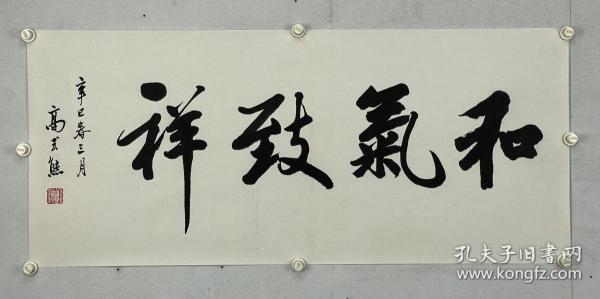 和氣致祥
辛巳春三月
高芝熊
孔夫子旧书网
www.kongfz.com